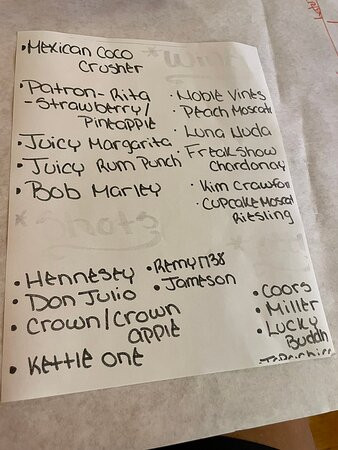 • Mexican Coco
Crusher
• Patron-Rita
- Strawberry/
Pineapple
• Juicy Margarita
• Juicy Rum Punch
• Bob Marley
• Noble Vines
• Peach Moscato
• Luna Nuda
• Freakshow
Chardonay
• Kim Crawfor
• Cupcake Moscat
Riesling
• Hennesey
• Don Julio
• Crown/Crown
apple
• Kettle One
• Remy 1738
• Jameson
• Coors
• Miller
• Lucky
Buddh